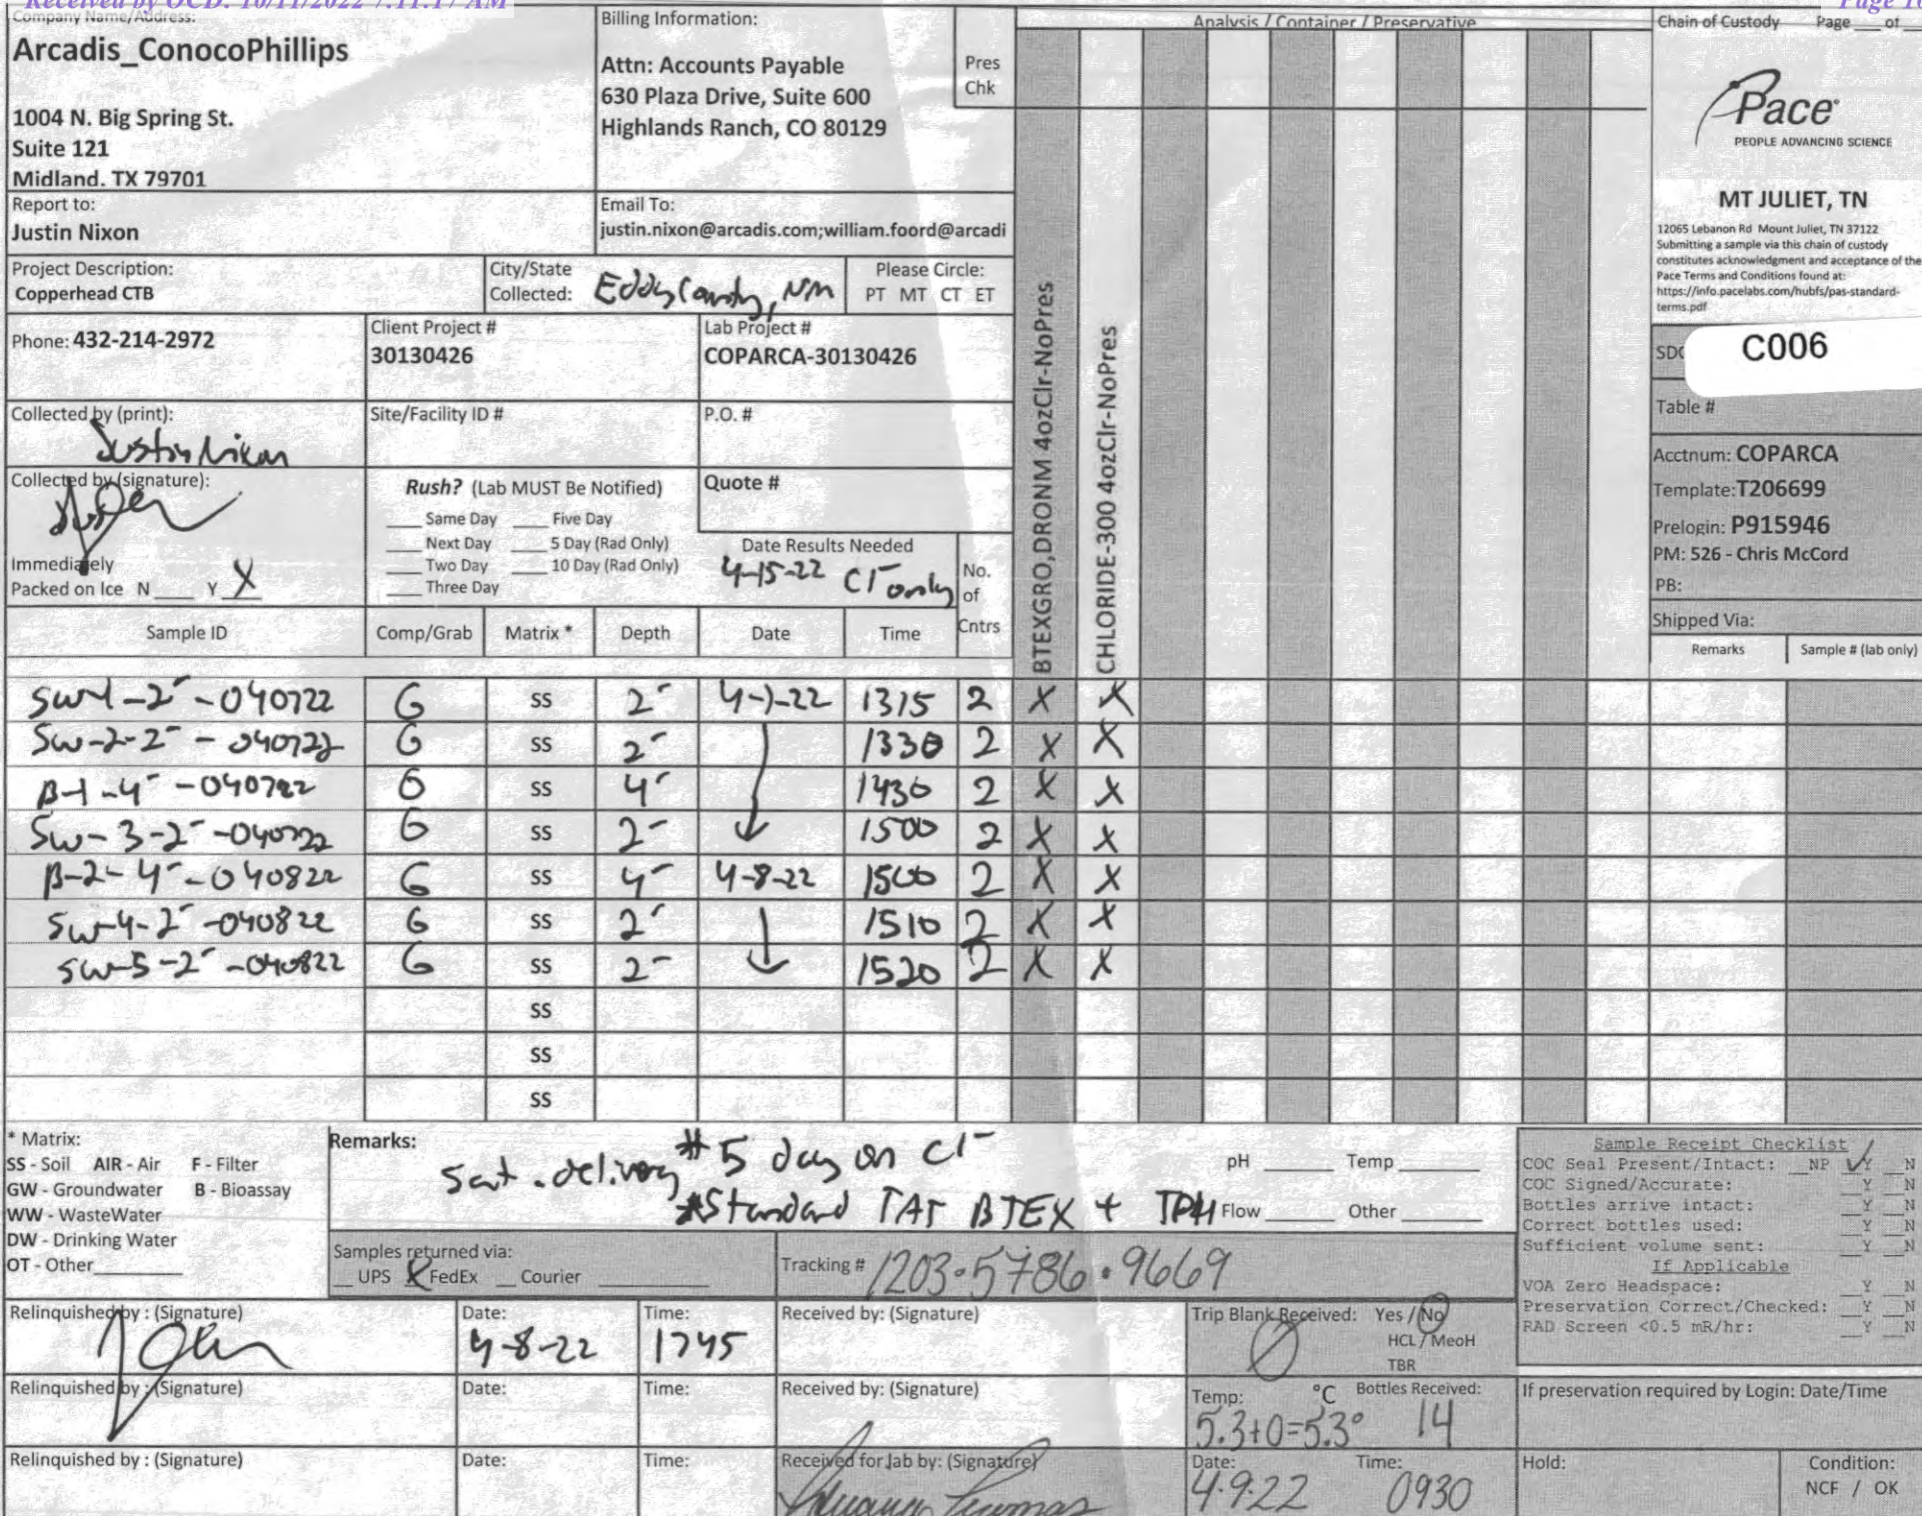 Received by OCD: 10/11/2022 7:11:17 AM
Company Name/Address:
Arcadis_ConocoPhillips
1004 N. Big Spring St.
Suite 121
Midland, TX 79701
Billing Information:
Attn: Accounts Payable
630 Plaza Drive, Suite 600
Highlands Ranch, CO 80129
Pres
Chk
Analysis / Container / Preservative
Chain of Custody Page ___ of
Pace
PEOPLE ADVANCING SCIENCE
MT JULIET, TN
12065 Lebanon Rd Mount Juliet, TN 37122
Submitting a sample via this chain of custody
constitutes acknowledgment and acceptance of the
Pace Terms and Conditions found at:
https://info.pacelabs.com/hubfs/pas-standard-
terms.pdf
Report to:
Justin Nixon
Email To:
justin.nixon@arcadis.com;william.foord@arcadi
Project Description:
Copperhead CTB
City/State
Collected: Eddy County, NM
Please Circle:
PT MT CT ET
Phone: 432-214-2972
Client Project #
30130426
Lab Project #
COPARCA-30130426
SDG
C006
Table #
Acctnum: COPARCA
Template: T206699
Prelogin: P915946
PM: 526 - Chris McCord
PB:
Shipped Via:
Remarks Sample # (lab only)
Collected by (print):
Justin Nixon
Site/Facility ID #
P.O. #
Collected by (signature):
Rush? (Lab MUST Be Notified)
___ Same Day ___ Five Day
___ Next Day ___ 5 Day (Rad Only)
___ Two Day ___ 10 Day (Rad Only)
___ Three Day
Quote #
Date Results Needed
4-15-22 Cl- only
Immediately
Packed on Ice N ___ Y X
No.
of
Cntrs
BTEXGRO,DRONM 4ozClr-NoPres
CHLORIDE-300 4ozClr-NoPres
Sample ID Comp/Grab Matrix * Depth Date Time
SW-1-2'-040722 G SS 2' 4-7-22 1315 2 X X
SW-2-2'-040722 G SS 2' 1330 2 X X
B-1-4'-040722 G SS 4' 1430 2 X X
SW-3-2'-040722 G SS 2' 1500 2 X X
B-2-4'-040822 G SS 4' 4-8-22 1500 2 X X
SW-4-2'-040822 G SS 2' 1510 2 X X
SW-5-2'-040822 G SS 2' 1520 2 X X
SS
SS
SS
* Matrix:
SS - Soil AIR - Air F - Filter
GW - Groundwater B - Bioassay
WW - WasteWater
DW - Drinking Water
OT - Other
Remarks:
Sat. delivery # 5 day on Cl-
*Standard TAT BTEX + TPH
pH ___ Temp ___
Flow ___ Other ___
Samples returned via:
__ UPS X FedEx __ Courier
Tracking # 1203-5786-9669
Sample Receipt Checklist
COC Seal Present/Intact: __NP ✓Y __N
COC Signed/Accurate: __Y __N
Bottles arrive intact: __Y __N
Correct bottles used: __Y __N
Sufficient volume sent: __Y __N
If Applicable
VOA Zero Headspace: __Y __N
Preservation Correct/Checked: __Y __N
RAD Screen <0.5 mR/hr: __Y __N
Relinquished by : (Signature)
Date:
4-8-22
Time:
1745
Received by: (Signature)
Trip Blank Received: Yes / No
HCL / MeoH
TBR
Relinquished by : (Signature)
Date:
Time:
Received by: (Signature)
Temp: °C Bottles Received:
5.3+0=5.3° 14
If preservation required by Login: Date/Time
Relinquished by : (Signature)
Date:
Time:
Received for lab by: (Signature)
Date: Time:
4-9-22 0930
Hold:
Condition:
NCF / OK